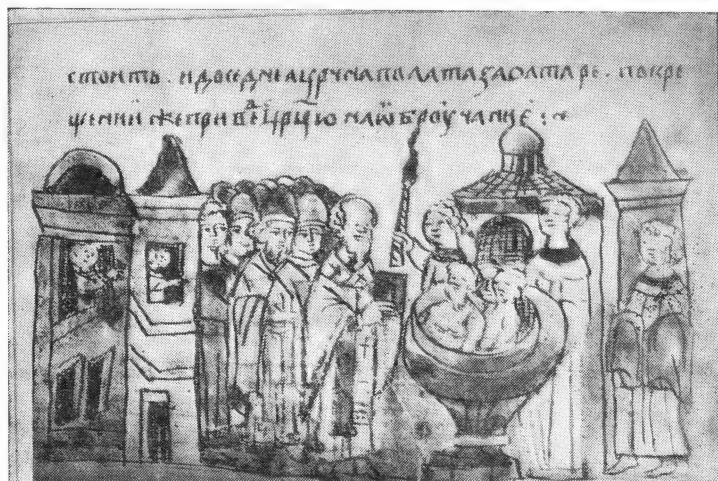 стоить . и до сед҃не а цр҃чна полата за олтаре . по кре
щении же приве҃д цр҃цю на ѡброучание :~